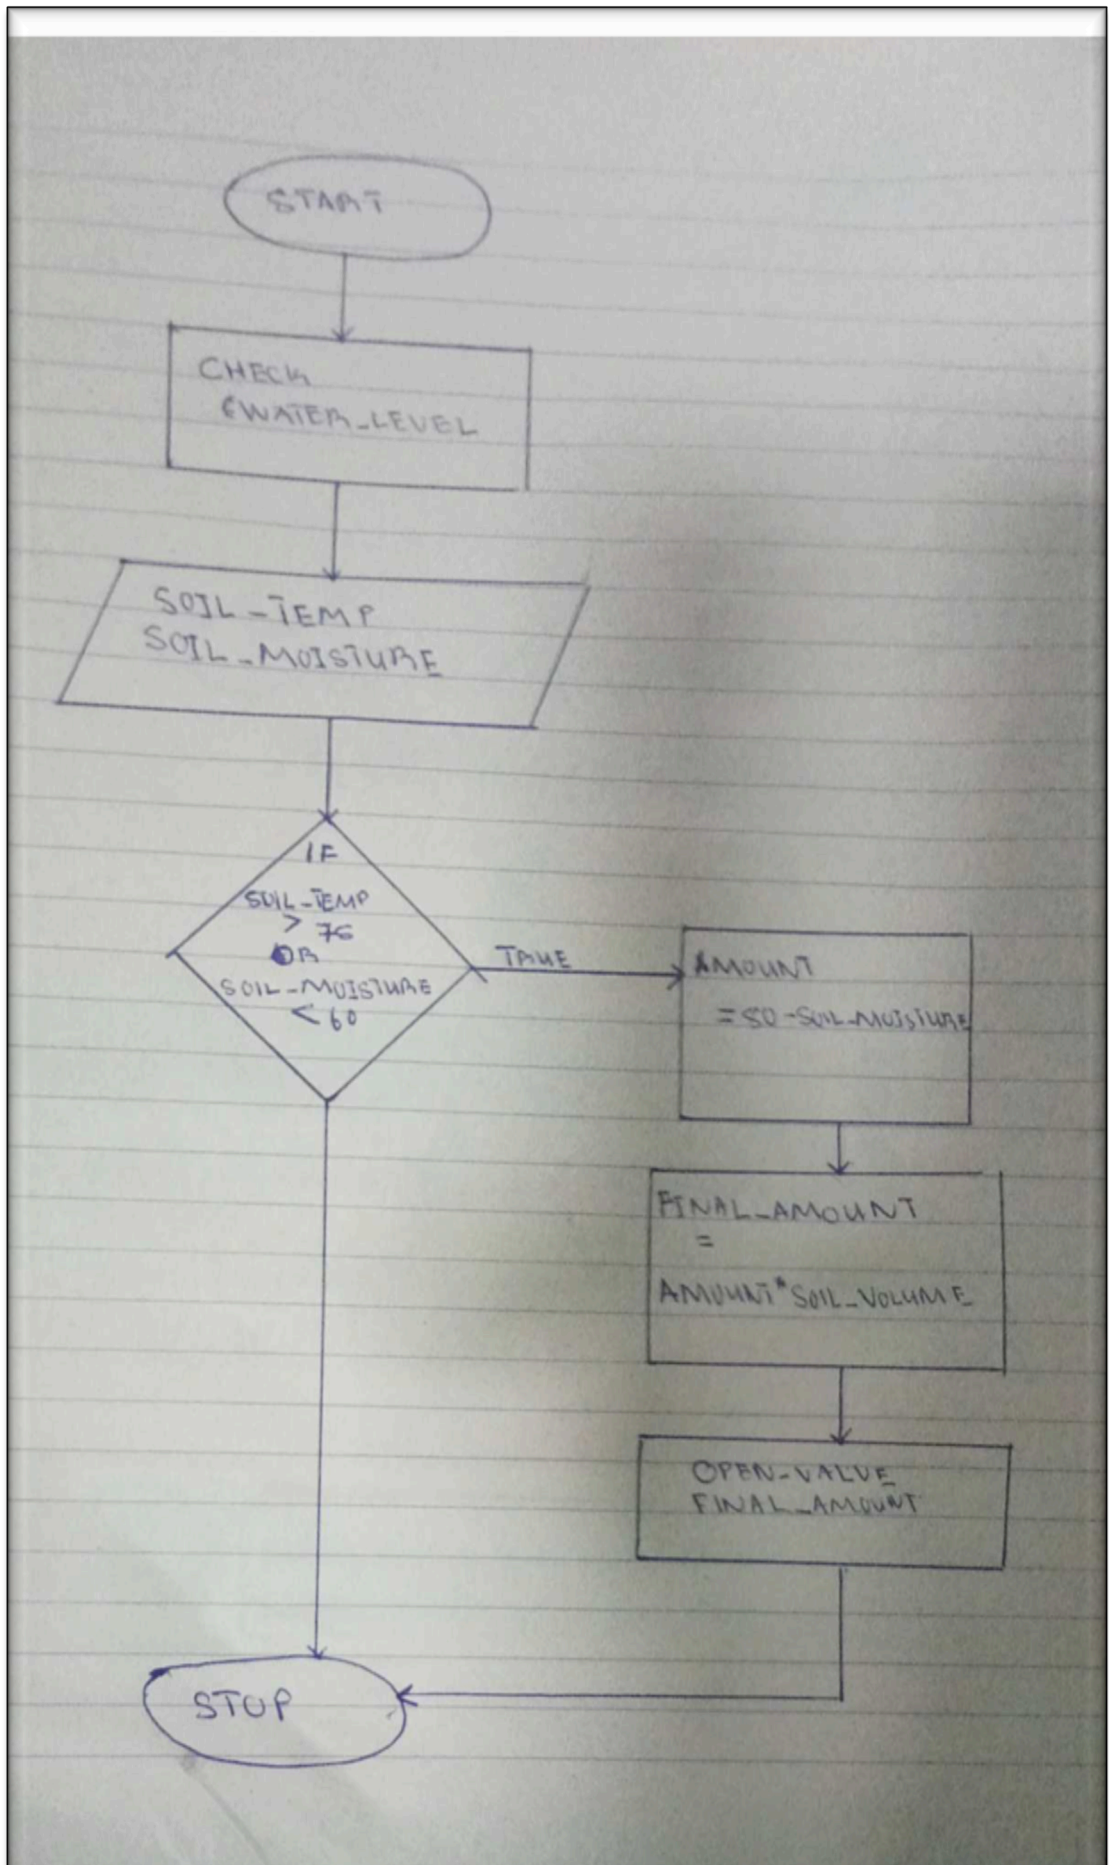 START
CHECK
WATER_LEVEL
SOIL_TEMP
SOIL_MOISTURE
IF
SOIL_TEMP
>
OR
SOIL_MOISTURE
< 60
TRUE
AMOUNT
= 80-SOIL_MOISTURE
FINAL_AMOUNT
=
AMOUNT*SOIL_VOLUME
OPEN-VALVE
FINAL_AMOUNT
STOP